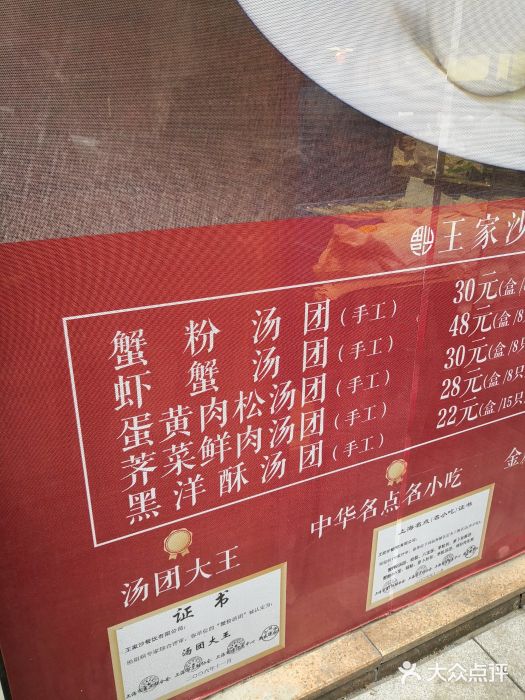 王家沙
蟹粉汤团(手工) 30元(盒/
虾蟹汤团(手工) 48元(盒/8
蛋黄肉松汤团(手工) 30元(盒/8只
荠菜鲜肉汤团(手工) 28元(盒/8只
黑洋酥汤团(手工) 22元(盒/15只
中华名点名小吃
汤团大王
上海名点(名小吃)证书
证书
王家沙餐饮有限公司:
汤团大王
大众点评